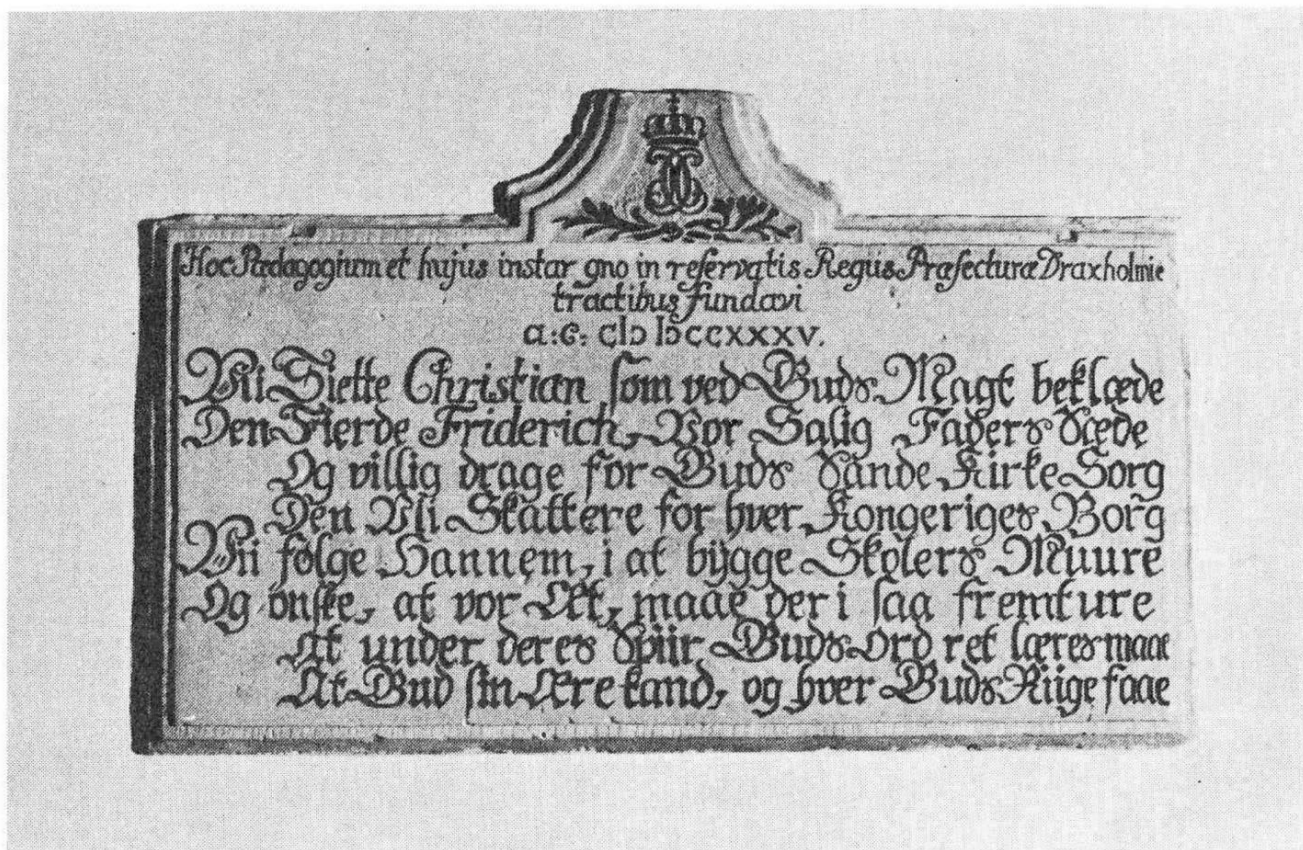 Hoc Pædagogium et hujus instar gno in reservatis Regiis Præfecturæ Draxholmie
tractibus fundavi
a:C: CIƆ IƆCCXXXV.
Vii Siette Christian som ved Guds Magt beklæde
Den Fierde Friderich, Vor Salig Faders Sæde
Og villig drage for Guds Sande Kirke Sorg
Den Vii Skattere for hver Kongeriges Borg
Vii følge Hannem, i at bÿgge Skolers Muure
Og önske, at vor Æt, maae der i saa fremture
At under deres Spiir Guds Ord ret læres maae
At Gud sin Ære kand, og hver Guds Riige faae